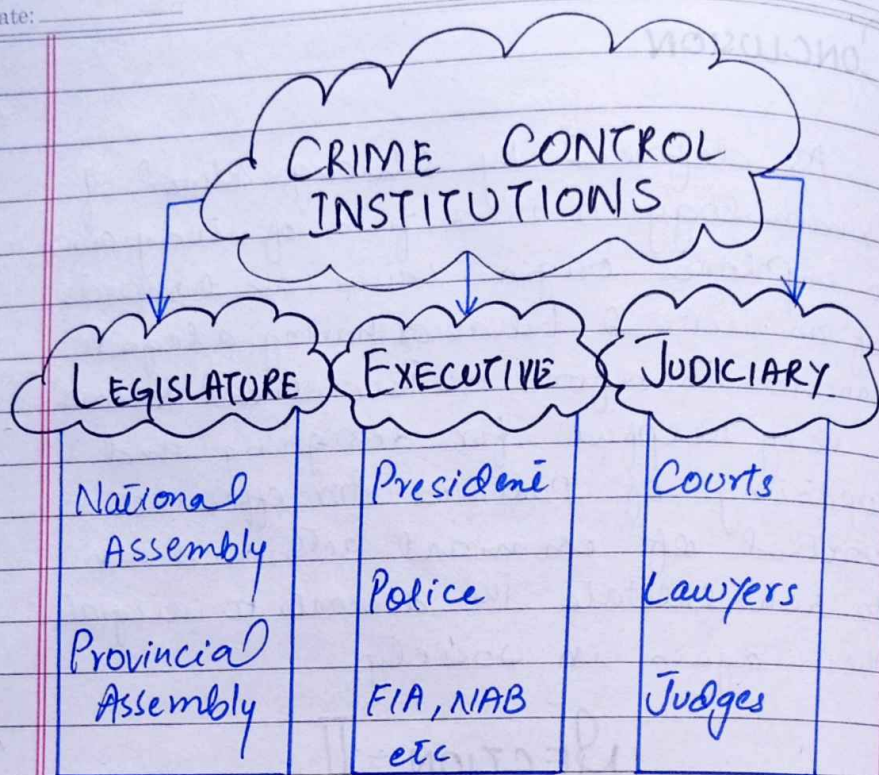 ate:
CRIME CONTROL
INSTITUTIONS
LEGISLATURE
EXECUTIVE
JUDICIARY
National
Assembly
Provincial
Assembly
President
Police
FIA, NAB
etc
Courts
Lawyers
Judges